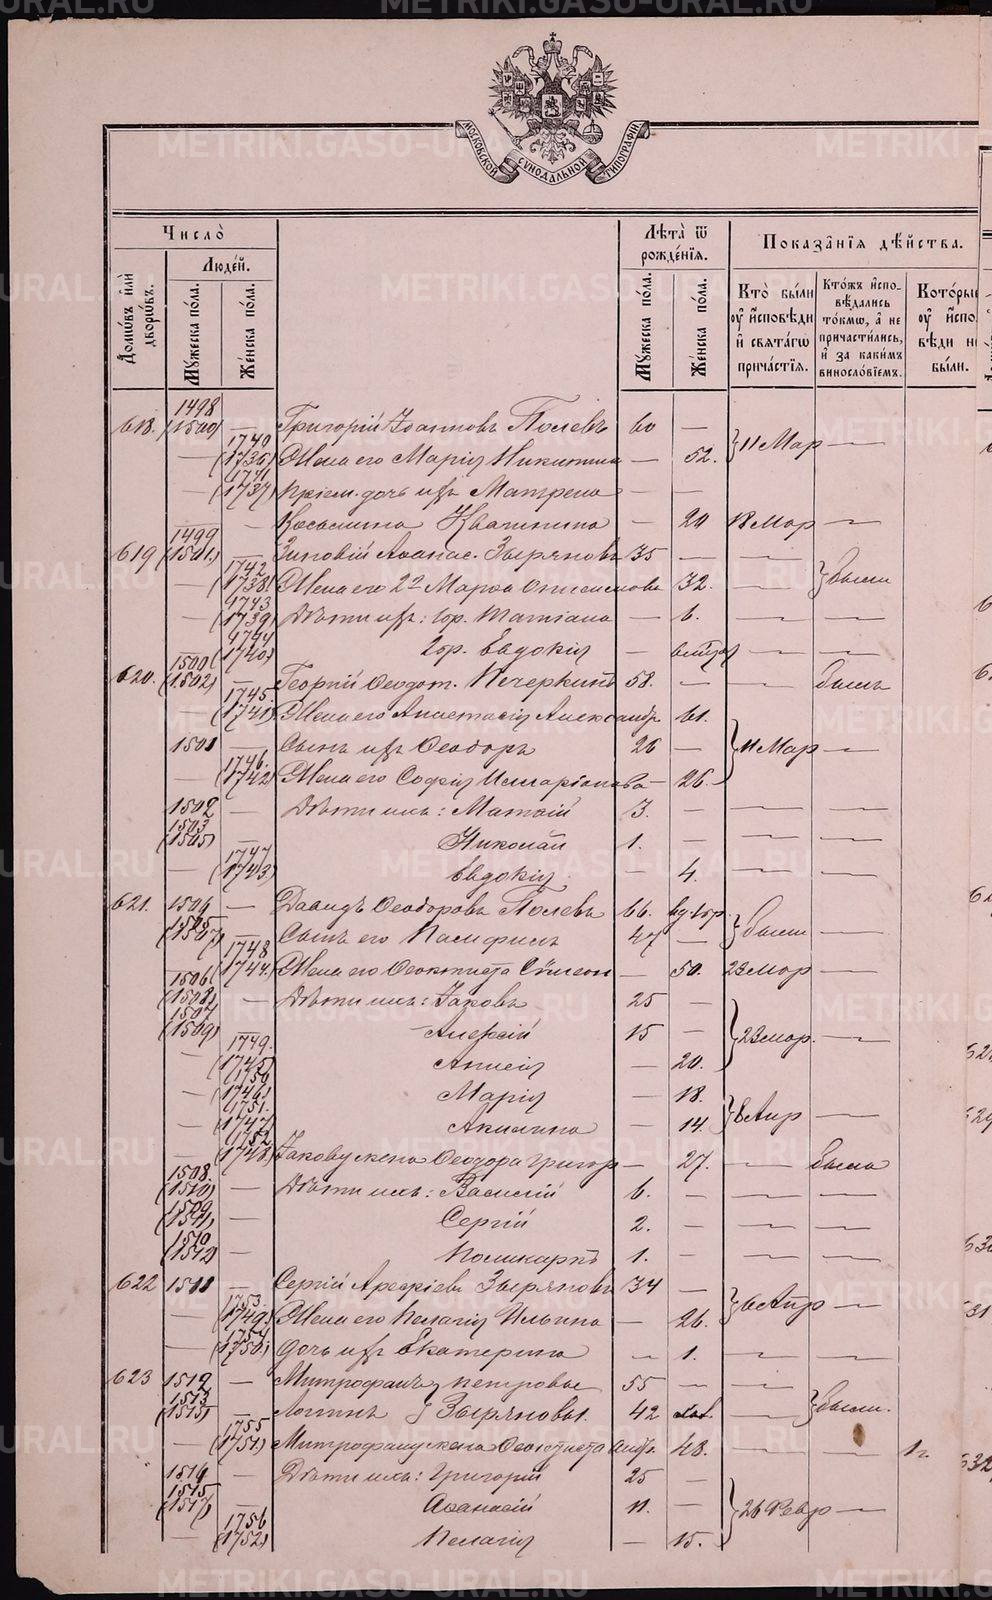 METRIKI.GASO-URAL.RU
МОСКОВСКОЙ СѴНОДАЛЬНОЙ ТИПОГРАФІИ
Число̀
Людей.
Домѡвъ или дворѡвъ.
Мꙋжеска пола.
Женска пола.
Лѣта ѿ рожденїѧ.
Мꙋжеска пола.
Женска пола.
Показанїѧ дѣйства.
Кто были оу исповѣди и свѧтагѡ причастїѧ.
Ктожъ исповѣдались токмѡ, а не причастились, и за какимъ винословїемъ.
Которые оу испо вѣди не были.
1498
618. (1500) — Григорій Іоанновъ Полевъ 60 —
1740
— (1736) Жена его Марія Никитина — 52. } 11 Мар —
1741
— (1737) Пріем. дочь ихъ Матрена — —
— Квачинина — 20 18 Мар —
1499
619 (1501) — Зиновій Аѳанас. Зыряновъ 35 — —
1742
— (1738) Жена его 2я Марѳа Онисимова 32. — } были
1743
— (1739) Дѣти ихъ: 1бр. Татіана — 6. — —
1744
(1740) 2бр. Евдокія — — —
1500
620. (1502) — Георгій Ѳеодот. Печеркинъ 58. — — былъ
1745
— (1741) Жена его Анастасія Александр 61.
1501 — Сынъ ихъ Ѳеодоръ 26 — } 11 Мар —
1746.
— (1742) Жена его Софія Илларіонова — 26.
1502 — Дѣти ихъ: Матѳій 3. — — —
1503
(1505) — Николай 1. — — —
1747
— (1743) Евдокія — 4. — —
621. 1504 — Давидъ Ѳеодоровъ Полевъ 66.
1505
(1507) — Сынъ его Памфилъ 47 — } были —
1748
— (1744) Жена его Ѳеоктиста Сѵмеон — 50. 23 Мар —
1506
(1508) — Дѣти ихъ: Іаковъ 25 —
1507
(1509) — Алексій 15 — } 23 мар. —
1749.
— (1745) Анисія — 20.
1750
— (1746) Марія — 18.
1751.
— (1747) Акилина — 14. } 8 Апр —
1752
— (1748) Іакову жена Ѳеодора Григор — 27. — была
1508.
(1510) — Дѣти ихъ: Василій 6. — — —
1509
(1511) — Сергій 2. — — —
1510
(1512) — Поликарпъ 1. — — —
622 1511 — Сергій Арефіевъ Зыряновъ 34 —
1753
— (1749) Жена его Пелагія Ильина — 26. } 6 Апр —
1754
— (1750) Дочь ихъ Екатерина — 1. — —
623 1512 — Митрофанъ Петровы 55 — —
1513
(1515) — Логинъ } Зыряновы. 42 — } были.
1755
— (1751) Митрофану жена Ѳеоктиста 48. — —
1514 — Дѣти ихъ: Григорій 25 —
1515
(1517) — Аѳанасій 11. — } 26 Февр —
1756
— (1752) Пелагія — 15.